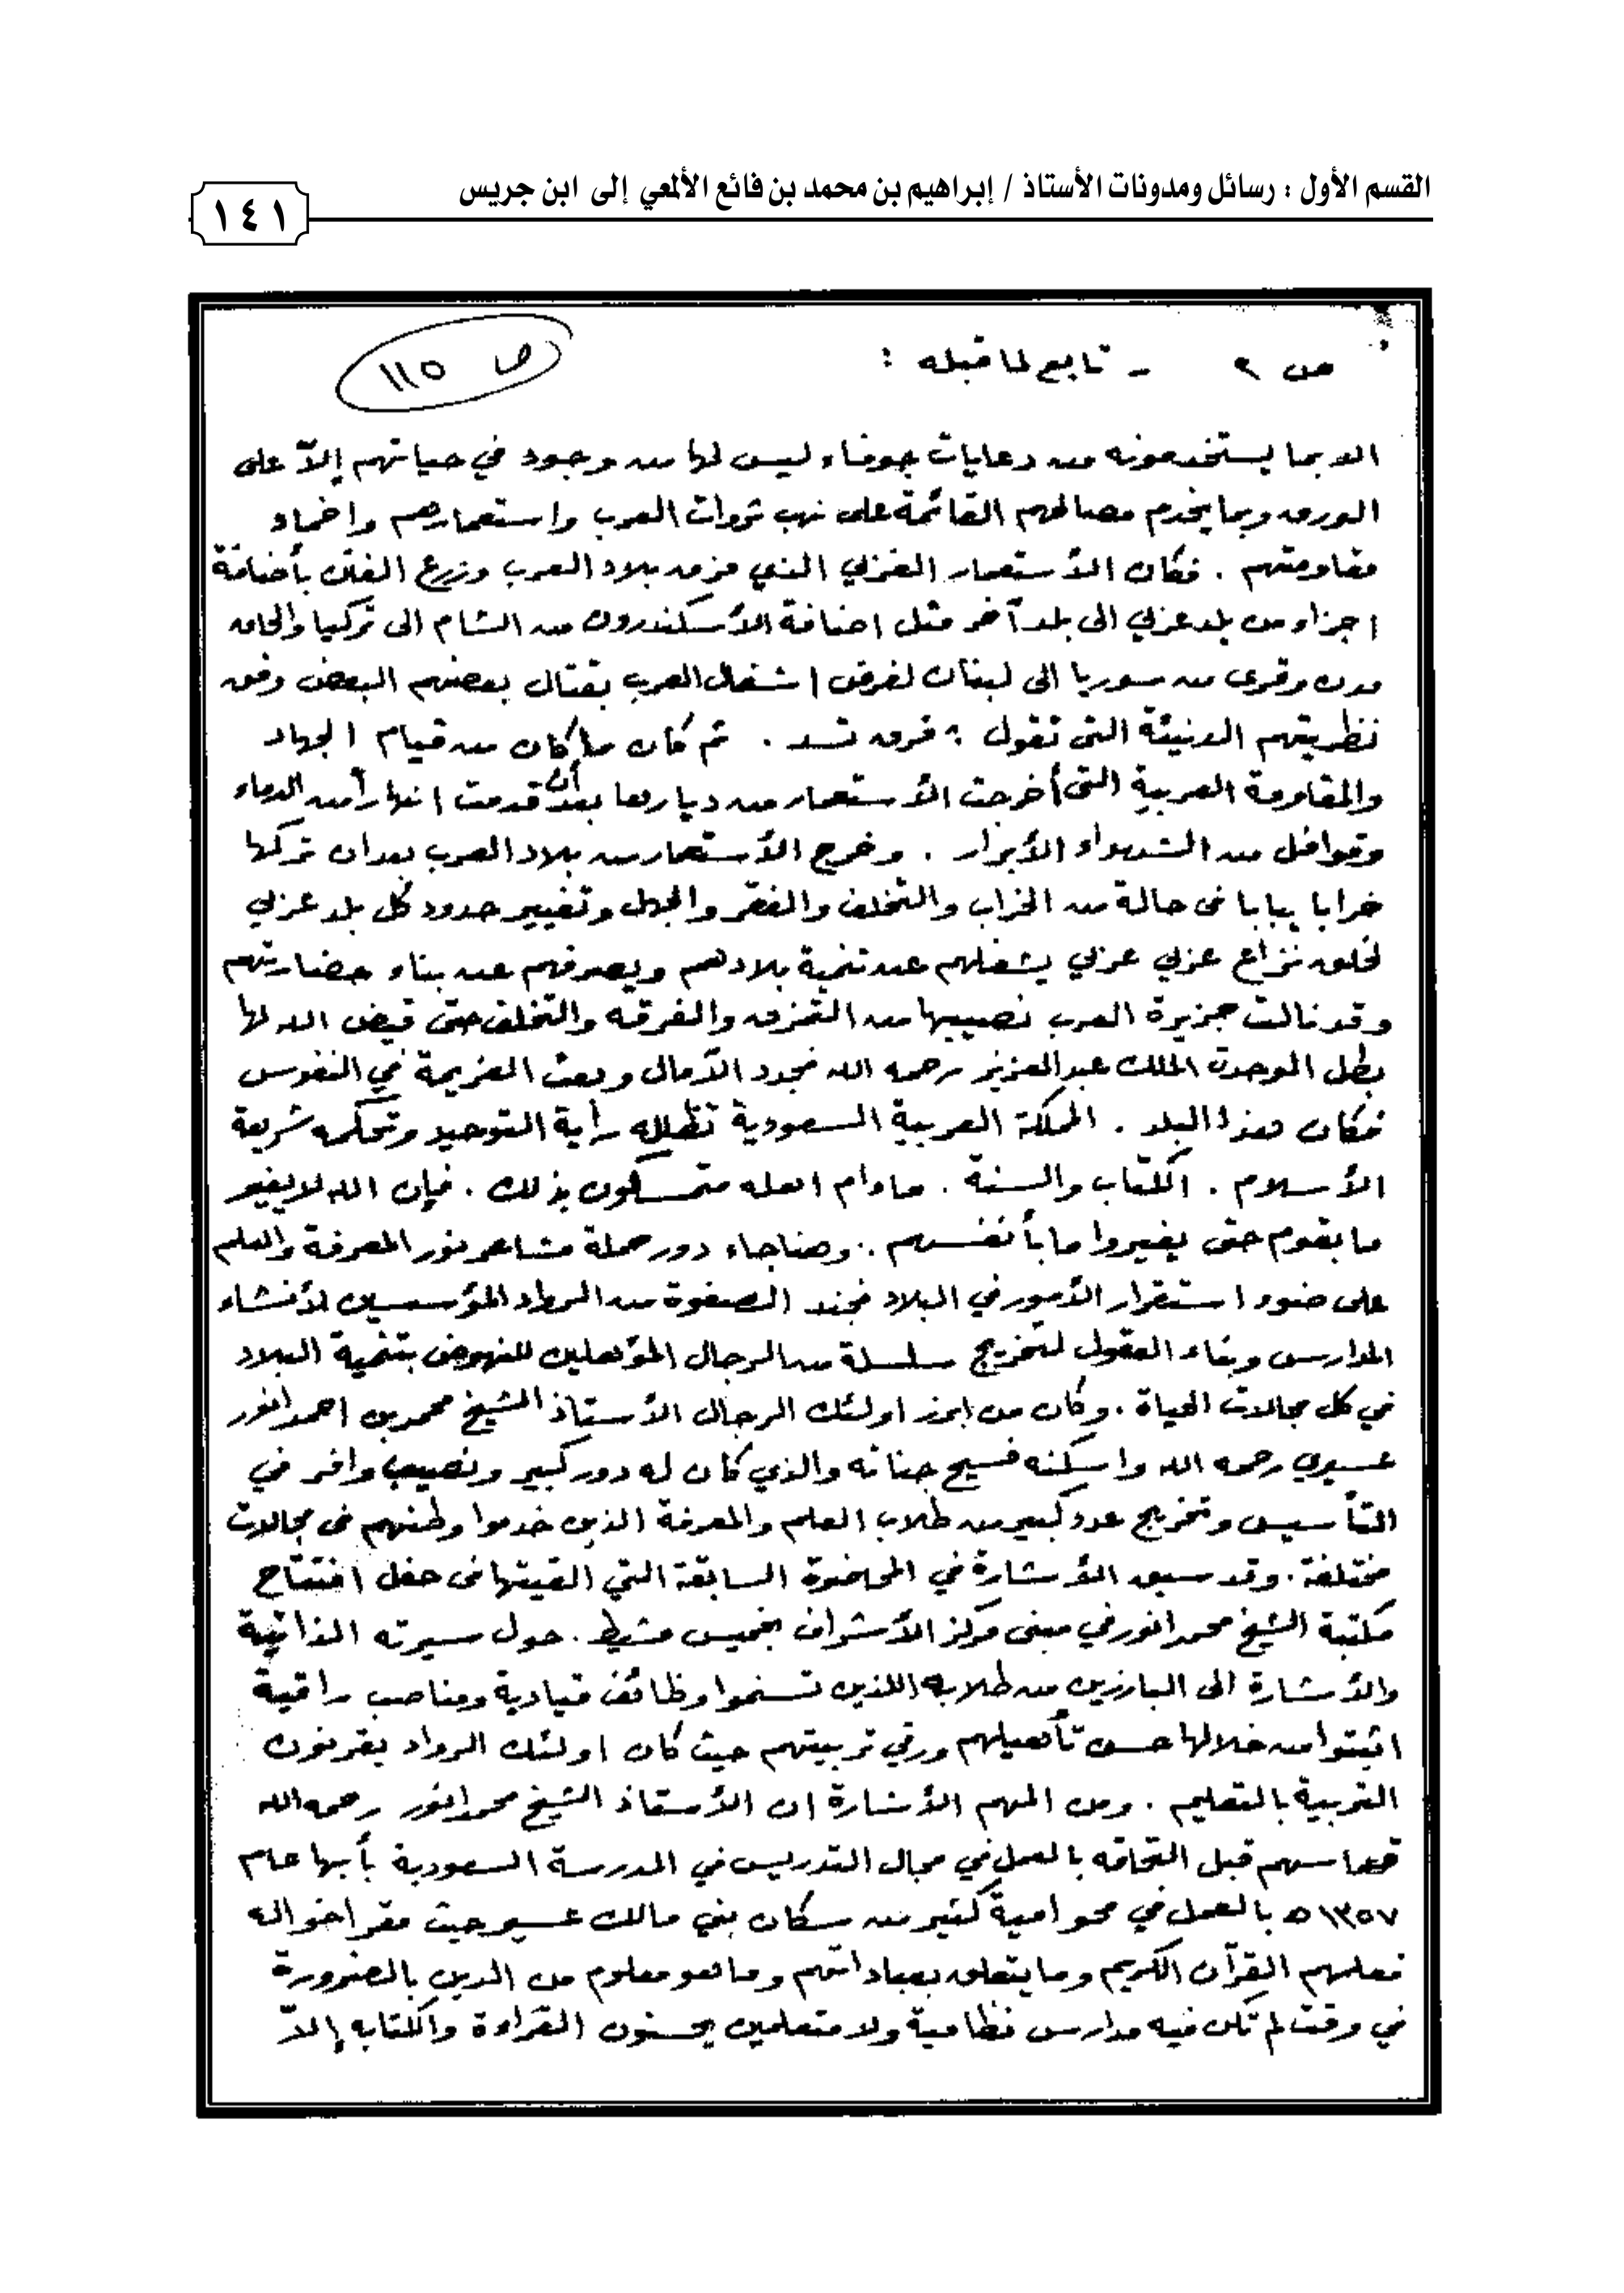 القسم الأول : رسائل ومدونات الأستاذ / إبراهيم بن محمد بن فائع الألمعي إلى ابن جريس
١٤١
ص ٢ - تابع لما قبله :
ص ١١٥
الا بما يستخدمونه من دعايات جوفاء ليس لها من وجود في حياتهم إلاّ على
الورق وبما يخدم مصالحهم القائمة على نهب ثروات العرب واستعمارهم واخماد
مقاومتهم . فكان الأستعمار الغربي الذي مزق بلاد العرب وزرع الفتن بأضافة
اجزاء من بلد عربي الى بلد آخر مثل اضافة الأسكندرون من الشام الى تركيا والحاق
مدن وقرى من سوريا الى لبنان لغرض اشغال العرب بقتال بعضهم البعض وفق
نظريتهم الدنيئة التى تقول : فرق تسد . ثم كان ما كان من قيام الجهاد
والمقاومة العربية التى أخرجت الأستعمار من ديارها بعد أن قدمت انهاراً من الدماء
وقوافل من الشهداء الأبرار . وخرج الأستعمار من بلاد العرب بعد ان تركها
خرابا يبابا فى حالة من الخراب والتخلف والفقر والجهل وتغيير حدود كل بلد عربي
لخلق نزاع عربي عربي يشغلهم عن تنمية بلادهم ويصرفهم عن بناء حضارتهم
وقد نالت جزيرة العرب نصيبها من التمزق والفرقه والتخلف حتى قيض الله لها
بطل الوحدة الملك عبدالعزيز رحمه الله فجدد الآمال وبعث العزيمة في النفوس
فكان هذا البلد . المملكة العربية السعودية تظلله رأية التوحيد وتحكمه شريعة
الأسلام . الكتاب والسنة . مادام اهله متمسكون بذلك . فإن الله لا يغير
ما بقوم حتى يغيروا ما بأنفسهم . وهنا جاء دور حملة مشاعر نور المعرفة والعلم
على ضوء استقرار الأمور في البلاد فجند الصفوة من الرواد المؤسسين لأنشاء
المدارس وبناء العقول لتخريج سلسلة من الرجال المؤهلين للنهوض بتنمية البلاد
في كل مجالات الحياة . وكان من ابرز اولئك الرجال الأستاذ الشيخ محمد بن احمد انور
عسيري رحمه الله واسكنه فسيح جناته والذي كان له دور كبير ونصيب وافر في
التأسيس وتخريج عدد كبير من طلاب العلم والمعرفة الذين خدموا وطنهم فى مجالات
مختلفة . وقد سبق الأشارة في المحاضرة السابقة التي القيتها فى حفل افتتاح
مكتبة الشيخ محمد انور في مبنى مركز الأشراف بخميس مشيط . حول سيرته الذاتية
والأشارة الى البارزين من طلابه اللذين تسنموا وظائف قيادية ومناصب راقية
اثبتوا من خلالها حسن تأهيلهم ورقي تربيتهم حيث كان اولئك الرواد يقرنون
التربية بالتعليم . ومن المهم الأشارة ان الأستاذ الشيخ محمد انور رحمه الله
قد اسهم قبل التحاقه بالعمل في مجال التدريس في المدرسة السعودية بأبها عام
١٣٥٧ه بالعمل في محو امية كثير من سكان بني مالك عسير حيث مقر اخواله
فعلمهم القرآن الكريم وما يتعلق بعباداتهم وما هو معلوم من الدين بالضرورة
في وقت لم تكن فيه مدارس نظامية ولا متعلمين يحسنون القراءة والكتابه إلاّ